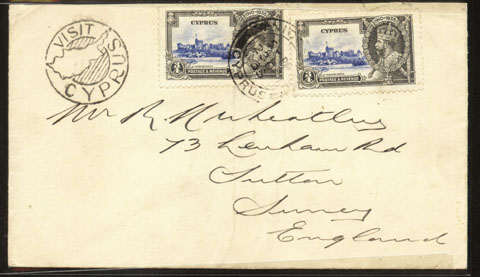 VISIT
CYPRUS
CYPRUS
1910-1935
3/4
POSTAGE & REVENUE
CYPRUS
1910-1935
3/4
POSTAGE & REVENUE
CYPRUS
Mr R. N. Wheatley
73 Lenham Rd
Sutton
Surrey
England